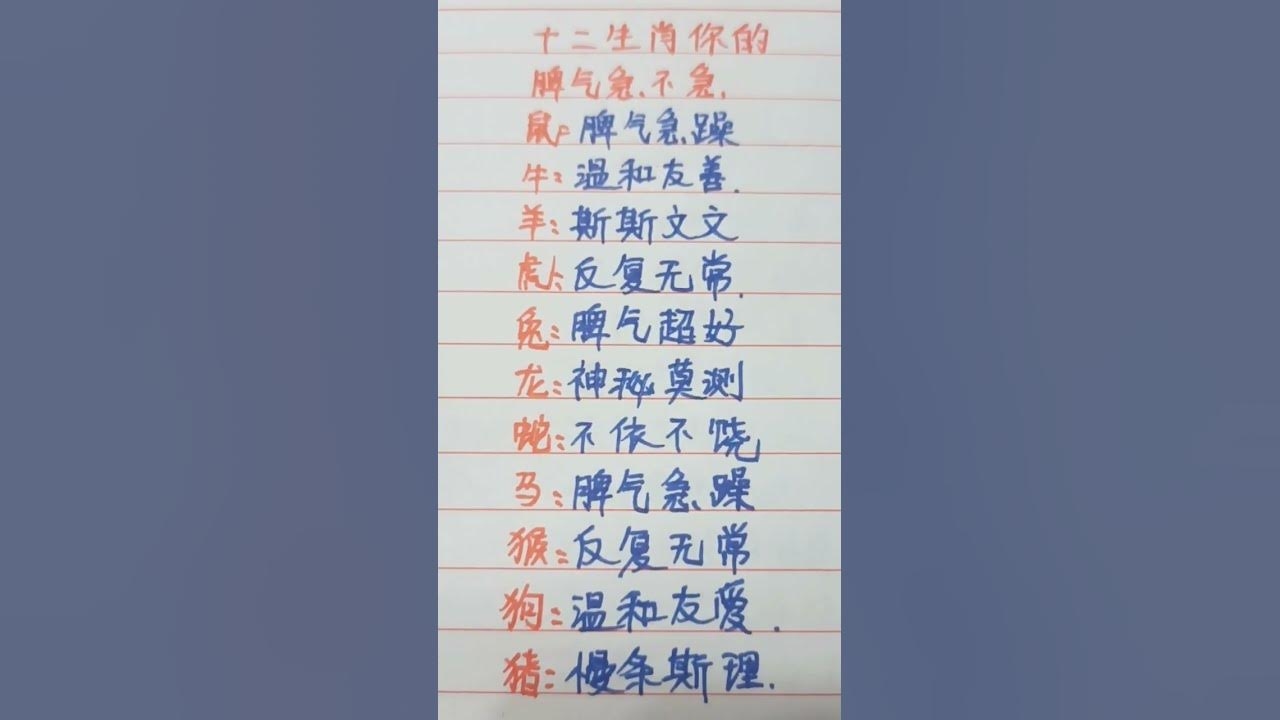 十二生肖你的
脾气急、不急.
鼠: 脾气急躁
牛: 温和友善.
羊: 斯斯文文
虎: 反复无常.
兔: 脾气超好
龙: 神秘莫测
蛇: 不依不饶
马: 脾气急躁
猴: 反复无常
狗: 温和友爱.
猪: 慢条斯理.